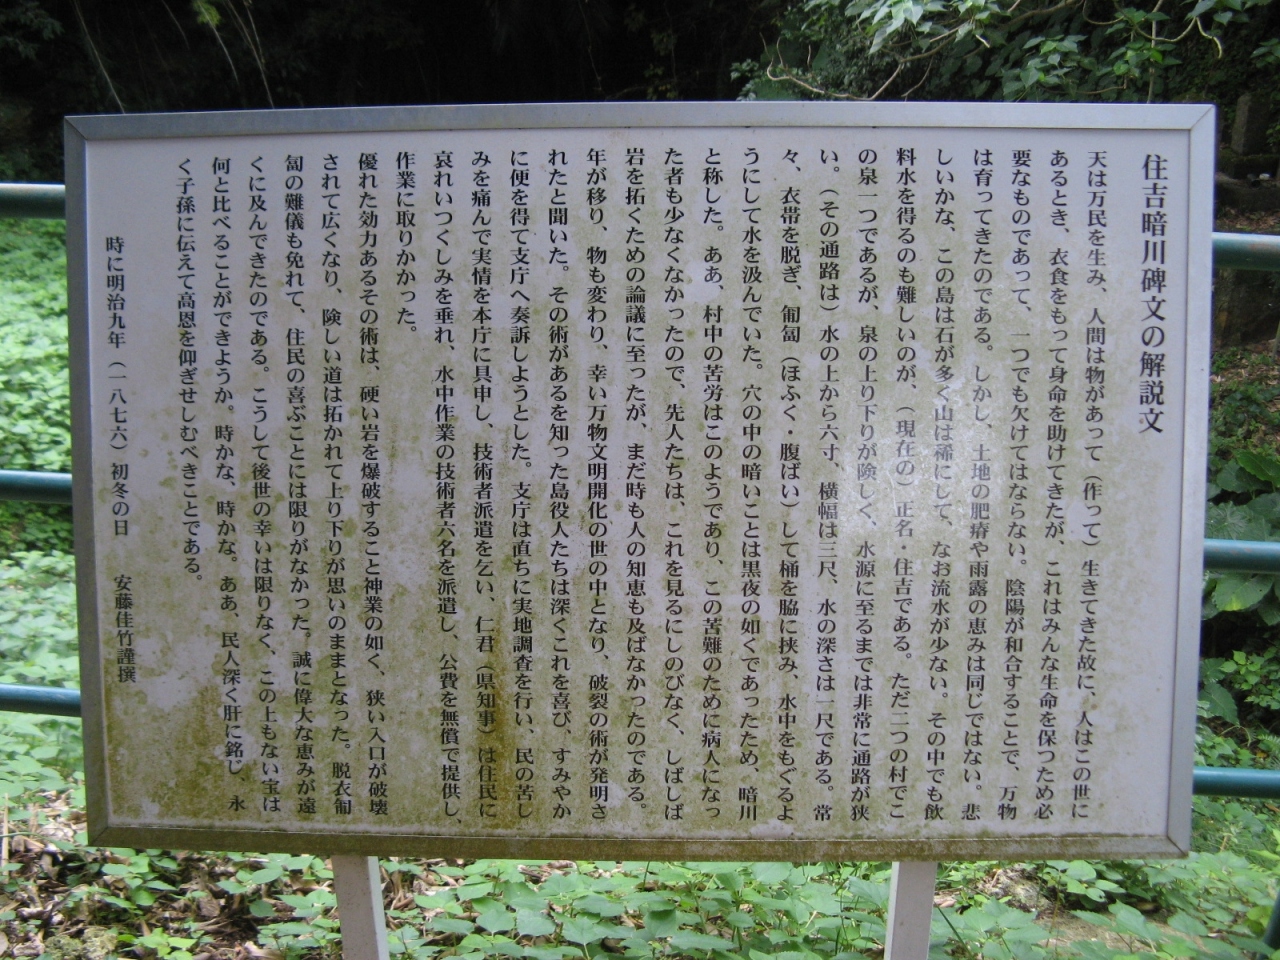 住吉暗川碑文の解説文
天は万民を生み、人間は物があって（作って）生きてきた故に、人はこの世に
あるとき、衣食をもって身命を助けてきたが、これはみんな生命を保つため必
要なものであって、一つでも欠けてはならない。陰陽が和合することで、万物
は育ってきたのである。しかし、土地の肥瘠や雨露の恵みは同じではない。悲
しいかな、この島は石が多く山は稀にして、なお流水が少ない。その中でも飲
料水を得るのも難しいのが、（現在の）正名・住吉である。ただ二つの村でこ
の泉一つであるが、泉の上り下りが険しく、水源に至るまでは非常に通路が狭
い。（その通路は）水の上から六寸、横幅は三尺、水の深さは一尺である。常
々、衣帯を脱ぎ、匍匐（ほふく・腹ばい）して桶を脇に挟み、水中をもぐるよ
うにして水を汲んでいた。穴の中の暗いことは黒夜の如くであったため、暗川
と称した。ああ、村中の苦労はこのようであり、この苦難のために病人になっ
た者も少なくなかったので、先人たちは、これを見るにしのびなく、しばしば
岩を拓くための論議に至ったが、まだ時も人の知恵も及ばなかったのである。
年が移り、物も変わり、幸い万物文明開化の世の中となり、破裂の術が発明さ
れたと聞いた。その術があるを知った島役人たちは深くこれを喜び、すみやか
に便を得て支庁へ奏訴しようとした。支庁は直ちに実地調査を行い、民の苦し
みを痛んで実情を本庁に具申し、技術者派遣を乞い、仁君（県知事）は住民に
哀れいつくしみを垂れ、水中作業の技術者六名を派遣し、公費を無償で提供し、
作業に取りかかった。
優れた効力あるその術は、硬い岩を爆破すること神業の如く、狭い入口が破壊
されて広くなり、険しい道は拓かれて上り下りが思いのままとなった。脱衣匍
匐の難儀も免れて、住民の喜ぶことには限りがなかった。誠に偉大な恵みが遠
くに及んできたのである。こうして後世の幸いは限りなく、この上もない宝は
何と比べることができようか。時かな、時かな。ああ、民人深く肝に銘じ、永
く子孫に伝えて高恩を仰ぎせしむべきことである。
時に明治九年（一八七六）初冬の日　安藤佳竹謹撰